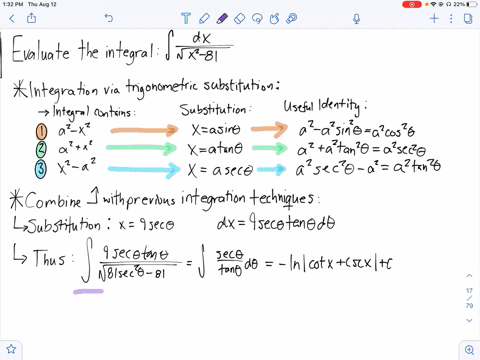 1:32 PM Thu Aug 12
22%
Evaluate the integral: ∫ dx/√(x²-81)
*Integration via trigonometric substitution:
→ Integral contains: Substitution: Useful Identity:
1 a²-x² x=asinθ a²-a²sin²θ=a²cos²θ
2 a²+x² x=atanθ a²+a²tan²θ=a²sec²θ
3 x²-a² x=asecθ a²sec²θ-a²=a²tan²θ
*Combine ⤴ with previous integration techniques:
↳ Substitution: x=9secθ dx=9secθtanθdθ
↳ Thus: ∫ 9secθtanθ/√(81sec²θ-81) = ∫ secθ/tanθ dθ = -ln|cotx+cscx|+c
17
/
79